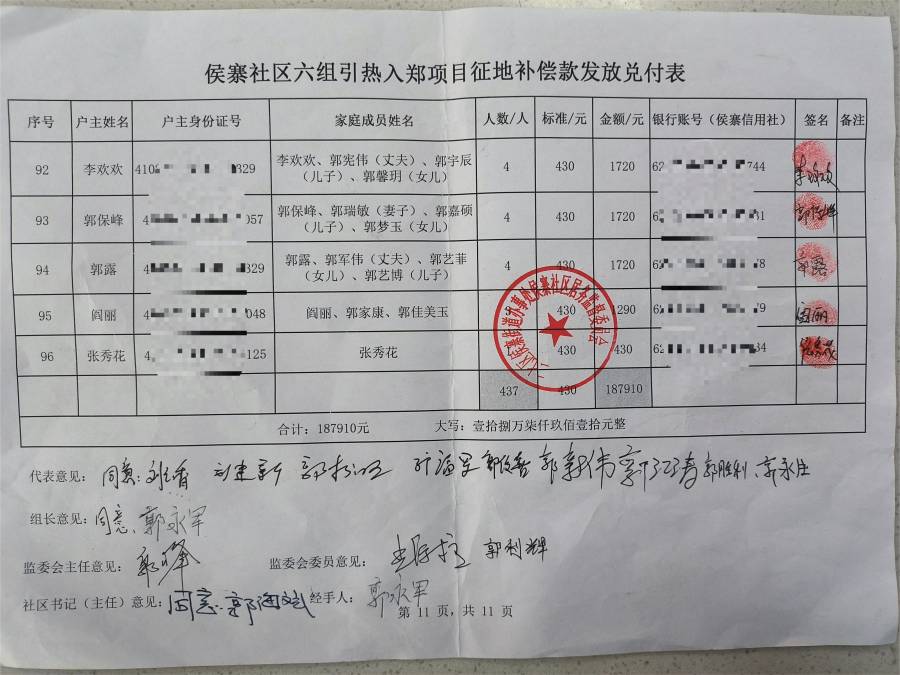 侯寨社区六组引热入郑项目征地补偿款发放兑付表
序号 户主姓名 户主身份证号 家庭成员姓名 人数/人 标准/元 金额/元 银行账号（侯寨信用社） 签名 备注
92 李欢欢 410 329 李欢欢、郭宪伟（丈夫）、郭宇辰（儿子）、郭馨玥（女儿） 4 430 1720 62 744
93 郭保峰 4 057 郭保峰、郭瑞敏（妻子）、郭嘉硕（儿子）、郭梦玉（女儿） 4 430 1720 62 31 郭保峰
94 郭露 4 329 郭露、郭军伟（丈夫）、郭艺菲（女儿）、郭艺博（儿子） 4 430 1720 62 8 郭露
95 阎丽 4 048 阎丽、郭家康、郭佳美玉 430 1290 62 79 阎丽
96 张秀花 4 125 张秀花 430 430 62 34
437 430 187910
合计：187910元 大写：壹拾捌万柒仟玖佰壹拾元整
侯寨街道办事处侯寨社区居务监督委员会
代表意见： 同意 郭胜利 郭永庄
组长意见： 同意 郭永军
监委会主任意见： 郭峰 监委会委员意见： 郭利辉
社区书记（主任）意见： 同意 经手人： 郭永军
第 11 页，共 11 页